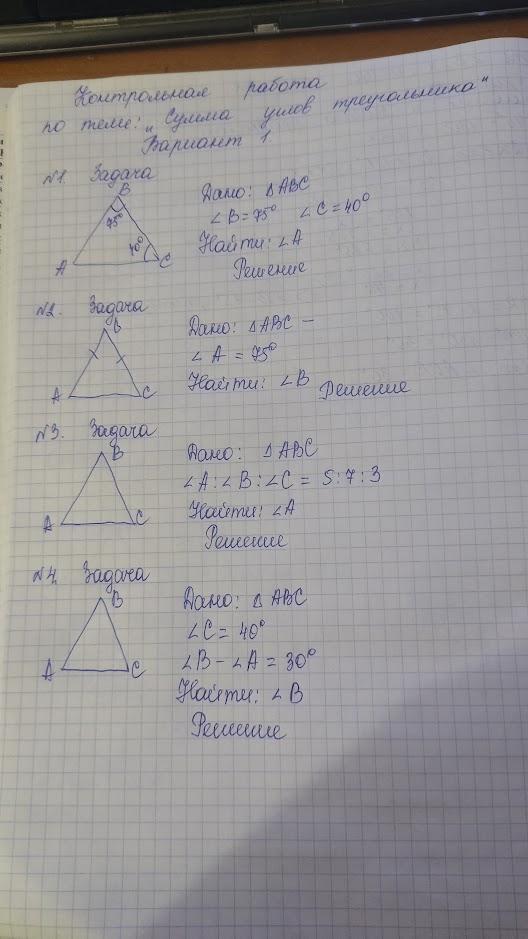 Контрольная работа
по теме: „Сумма углов треугольника"
Вариант 1.
№1. Задача
B
75°
40°
A
C
Дано: ΔABC
∠B = 75° ∠C = 40°
Найти: ∠A
Решение
№2. Задача
B
A
C
Дано: ΔABC —
∠A = 75°
Найти: ∠B
Решение
№3. Задача
B
A
C
Дано: ΔABC
∠A : ∠B : ∠C = 5 : 7 : 3
Найти: ∠A
Решение
№4. Задача
B
A
C
Дано: ΔABC
∠C = 40°
∠B - ∠A = 30°
Найти: ∠B
Решение